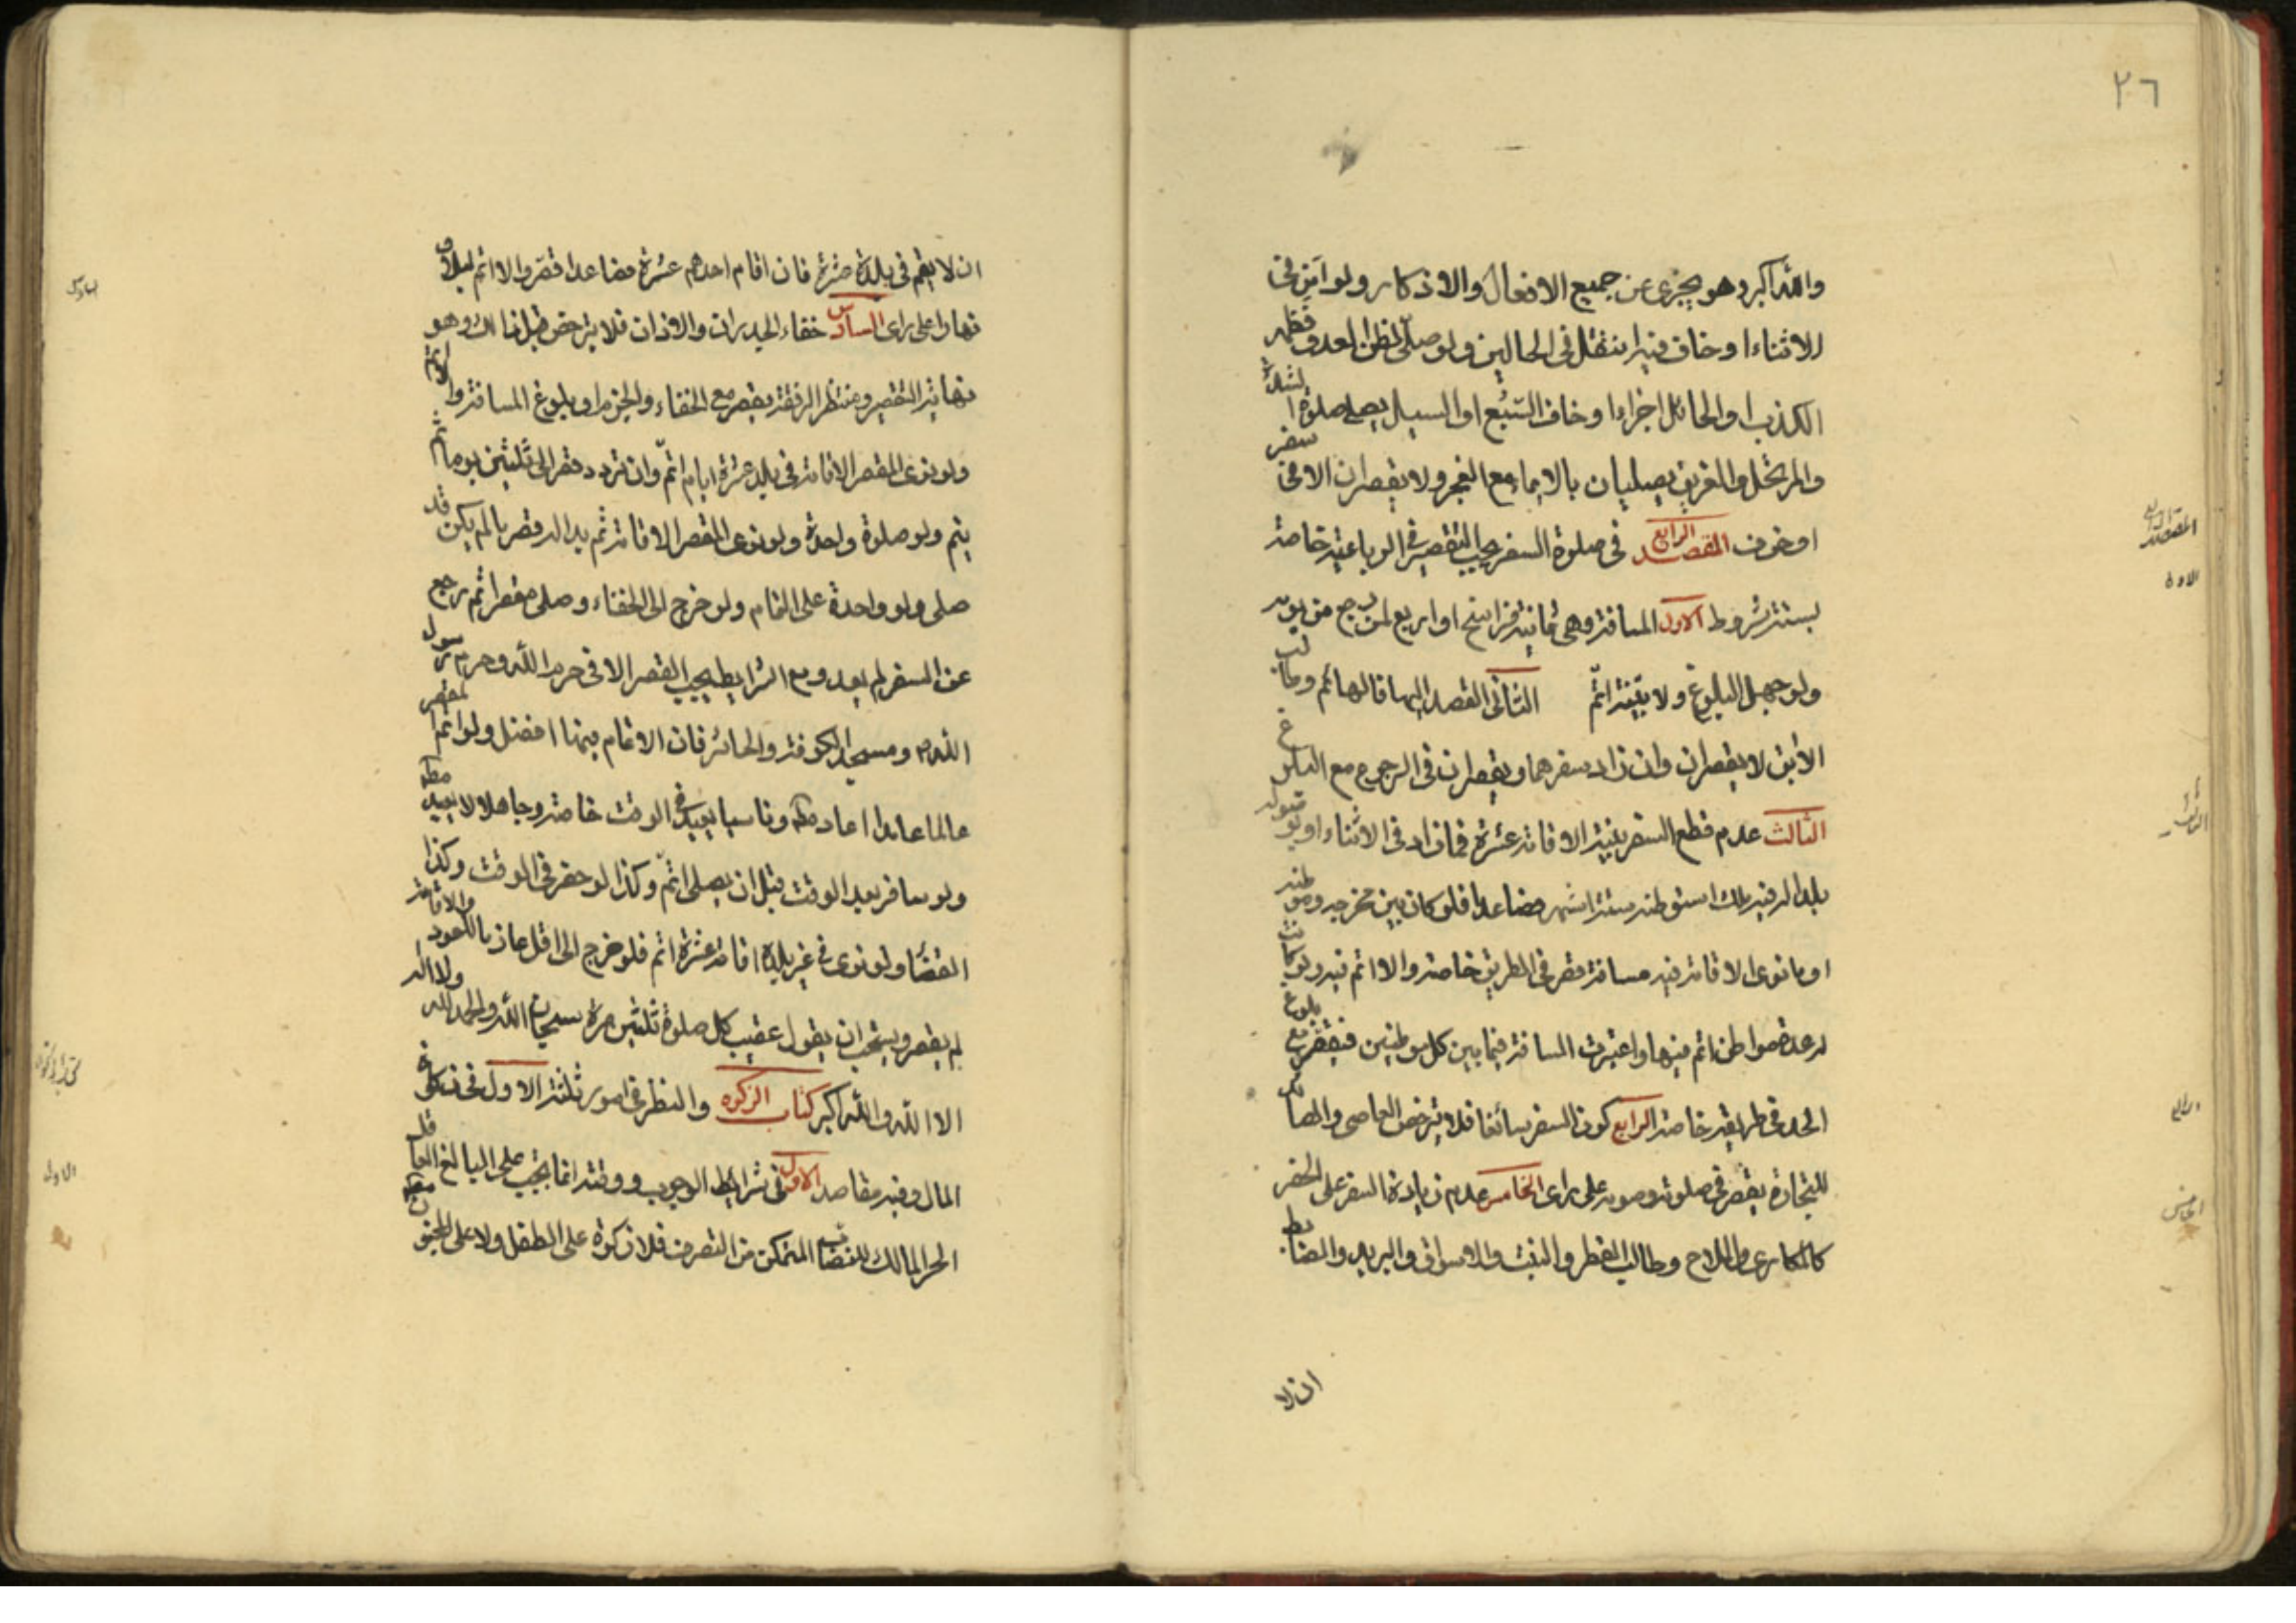 ٢٦
والله اكبر وهو يجزى عن جميع الافعال والاذكار ولو امن فى
الاثناء او خاف فيه انتقل فى الحالين ولو صلى لظن العدو فظهر
الكذب او الحائل اجزا او خاف السبع او السيل يصلى صلوة الشدة
والمرتحل والغريق يصليان بالايماء مع العجز ولا يقصران الا فى سفر
او خوف المقصد الرابع فى صلوة السفر يجب التقصير فى الرباعية خاصة
بستة شروط الاول المسافة وهى ثمانية فراسخ او اربع لمن رجع من يومه
ولو جهل البلوغ ولا بينة اتم الثانى القصد اليها فالهائم وطالب
الآبق لا يقصران وان زاد سفرهما ويقصران فى الرجوع مع البلوغ
الثالث عدم قطع السفر بنية الاقامة عشرة فما زاد فى الاثناء او بوصوله
بلدا له فيه ملك استوطنه ستة اشهر فصاعدا فلو كان بين مخرجه وموطنه
او ما نوى الاقامة فيه مسافة قصر فى الطريق خاصة والا اتم فيه ولو كانت
له عدة مواطن اتم فيها واعتبرت المسافة فيما بين كل موطنين فيقصر مع بلوغ
الحد فى طريقه خاصة الرابع كون السفر سائغا فلا يترخص العاصى والصائد
للتجارة يقصر فى صلوته وصومه على راى الخامس عدم زيادة السفر على الحضر
كالمكارى والملاح وطالب القطر والنبت والاسواق والبريد والضابط
ان لا
المقصد الرابع
الاول
الثالث
الرابع
الخامس
ان لا يقيم فى بلده عشرة فان اقام احدهم عشرة فصاعدا قصر والا اتم ليلا و
نهارا على راى السادس خفاء الجدران والاذان فلا يترخص قبل ذلك وهو
نهاية التقصير ومنتظر الرفقة يقصر مع الخفاء والجزم او بلوغ المسافة والا اتم
ولو نوى المقصر الاقامة فى بلد عشرة ايام اتم وان تردد قصر الى ثلثين يوما ثم
يتم ولو صلوة واحدة ولو نوى المقصر الاقامة ثم بدا له قصر ما لم يكن قد
صلى ولو واحدة على التمام ولو خرج الى الخفاء وصلى مقصرا ثم رجع
عن السفر لم يعد ومع الشرايط يجب القصر الا فى حرم الله وحرم رسول
الله ومسجد الكوفة والحائر فان الاتمام فيها افضل ولو اتم المقصر
عالما عامدا اعاد مطلقا وناسيا يعيد فى الوقت خاصة وجاهلا لا يعيد مطلقا
ولو سافر بعد الوقت قبل ان يصلى اتم وكذا لو حضر فى الوقت وكذا
القضاء ولو نوى فى غير بلده اقامة عشرة اتم فلو خرج الى اقل عازما للعود والاقامة
لم يقصر ويستحب ان يقول عقيب كل صلوة ثلثين مرة سبحان الله والحمد لله ولا اله
الا الله والله اكبر كتاب الزكوة والنظر فى امور ثلثة الاول فى زكوة
المال وفيه مقاصد الاول فى شرائط الوجوب ووقته انما يجب على البالغ العاقل
الحر المالك للنصاب المتمكن من التصرف فلا زكوة على الطفل ولا على المجنون مطلقا
السادس
كتاب الزكوة
الاول